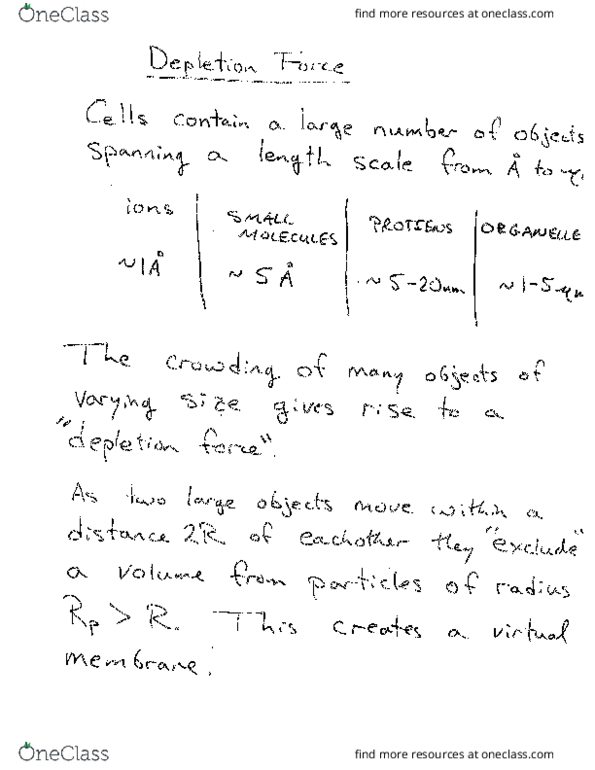 OneClass
find more resources at oneclass.com
Depletion Force
Cells contain a large number of objects
spanning a length scale from Å to
ions | SMALL MOLECULES | PROTIENS | ORGANELLE
~1Å | ~ 5 Å | ~ 5-20nm | ~ 1-5
The crowding of many objects of
varying size gives rise to a
"depletion force".
As two large objects move within a
distance 2R of eachother they "exclude"
a volume from particles of radius
Rp > R. This creates a virtual
membrane.
OneClass
find more resources at oneclass.com